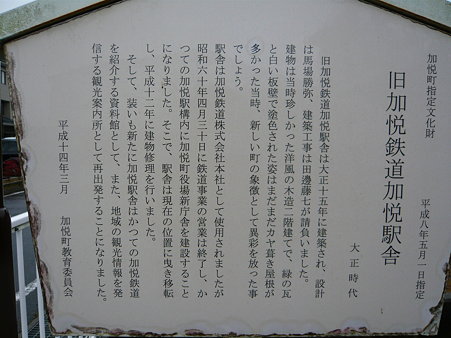 加悦町指定文化財
平成八年五月一日指定
旧加悦鉄道加悦駅舎
大正時代
旧加悦鉄道加悦駅舎は大正十五年に建築され、設計
は馬場勝弥、建築工事は田邊藤七が請負いました。
建物は当時珍しかった洋風の木造二階建てで、緑の瓦
と白い板壁で塗色された姿はまだまだカヤ葺き屋根が
多かった当時、新しい町の象徴として異彩を放った事
でしょう。
駅舎は加悦鉄道株式会社本社として使用されましたが
昭和六十年四月三十日に鉄道事業の営業は終了し、か
つての加悦駅構内に加悦町役場新庁舎を建設すること
になりました。そこで、駅舎は現在の位置に曳き移転
し、平成十二年に建物修理を行いました。
そして、装いも新たに加悦駅舎はかつての加悦鉄道
を紹介する資料館として、また、地域の観光情報を発
信する観光案内所として再出発することになりました。
平成十四年三月
加悦町教育委員会